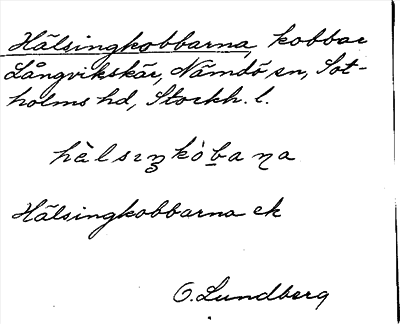 Hälsingkobbarna, kobbar
Långvikskär, Nämdö sn, Sot-
holms hd, Stockh. l.
hälsıŋkòbaɳa
Hälsingkobbarna ek
O. Lundberg